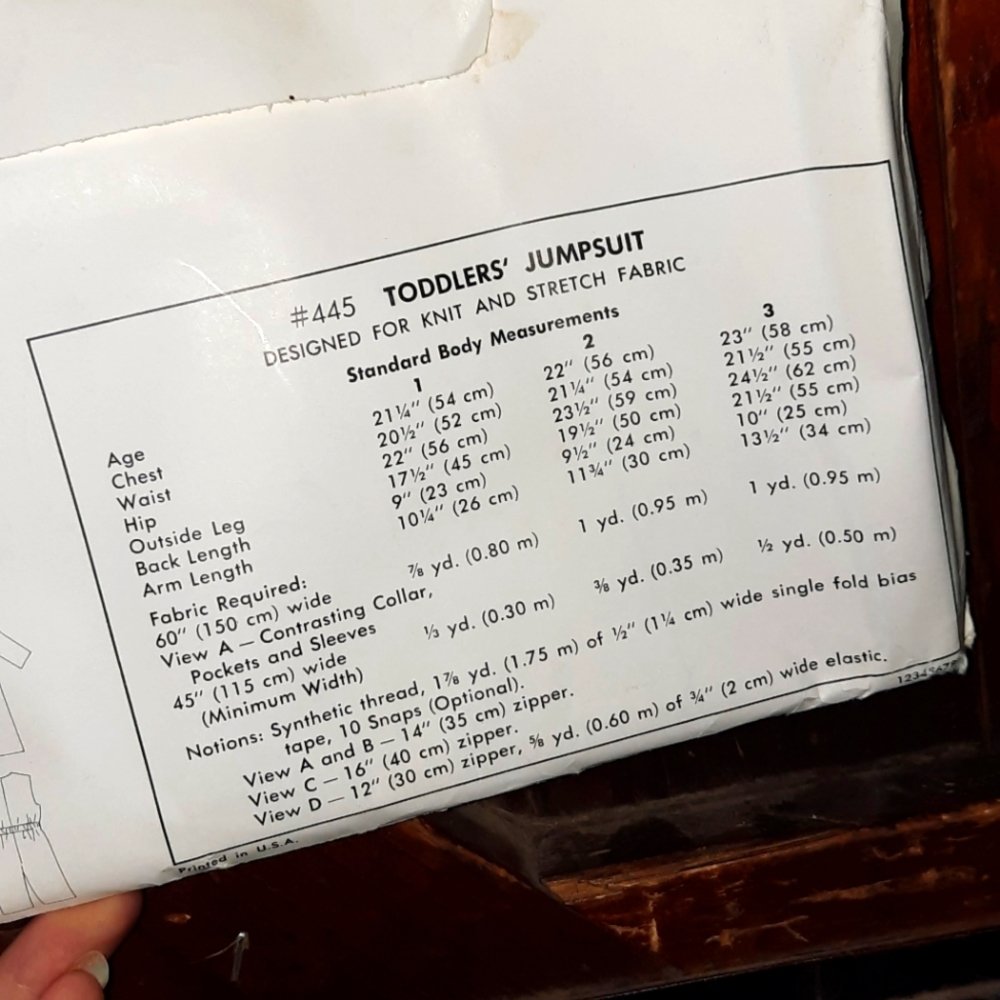 #445 TODDLERS' JUMPSUIT
DESIGNED FOR KNIT AND STRETCH FABRIC
Standard Body Measurements
Age 1 2 3
Chest 21¼" (54 cm) 22" (56 cm) 23" (58 cm)
Waist 20½" (52 cm) 21¼" (54 cm) 21½" (55 cm)
Hip 22" (56 cm) 23½" (59 cm) 24½" (62 cm)
Outside Leg 17½" (45 cm) 19½" (50 cm) 21½" (55 cm)
Back Length 9" (23 cm) 9½" (24 cm) 10" (25 cm)
Arm Length 10¼" (26 cm) 11¾" (30 cm) 13½" (34 cm)
Fabric Required:
60" (150 cm) wide ⅞ yd. (0.80 m) 1 yd. (0.95 m) 1 yd. (0.95 m)
View A – Contrasting Collar,
Pockets and Sleeves
45" (115 cm) wide ⅓ yd. (0.30 m) ⅜ yd. (0.35 m) ½ yd. (0.50 m)
(Minimum Width)
Notions: Synthetic thread, 1⅞ yd. (1.75 m) of ½" (1¼ cm) wide single fold bias
tape, 10 Snaps (Optional).
View A and B – 14" (35 cm) zipper.
View C – 16" (40 cm) zipper.
View D – 12" (30 cm) zipper, ⅝ yd. (0.60 m) of ¾" (2 cm) wide elastic.
Printed in U.S.A.